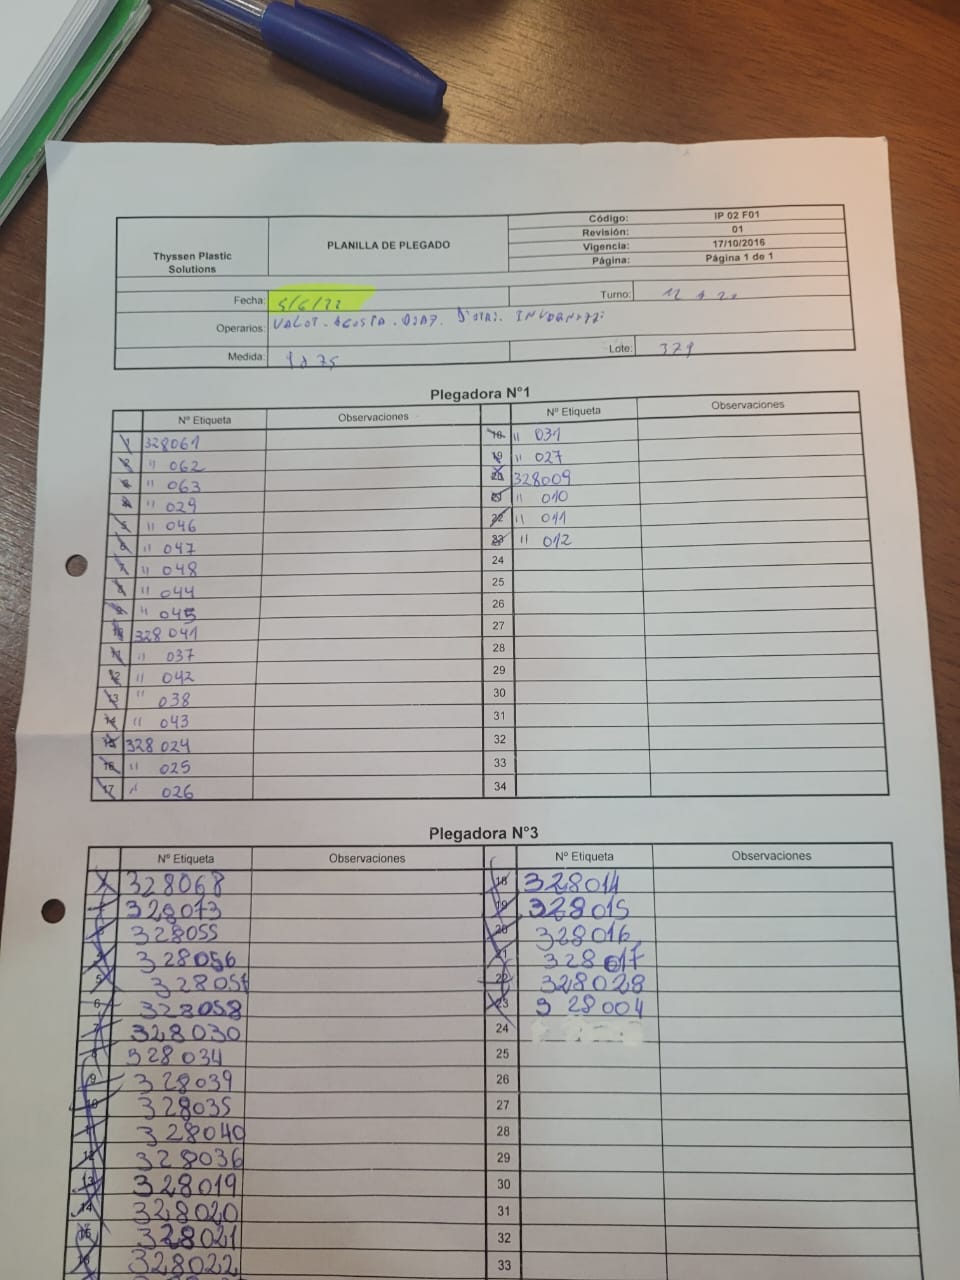 Thyssen Plastic Solutions
PLANILLA DE PLEGADO
Código: IP 02 F01
Revisión: 01
Vigencia: 17/10/2016
Página: Página 1 de 1
Fecha: 5/6/22
Turno: 12 a 20
Operarios: VALOT. ACOSTA. DIAZ. INVERNIZZI
Medida:
Lote: 379
Plegadora N°1
Nº Etiqueta Observaciones Nº Etiqueta Observaciones
1 328061 18 " 031
2 " 062 19 " 027
3 " 063 20 328009
4 " 029 21 " 010
5 " 046 22 " 011
6 " 047 23 " 012
7 " 048 24
8 " 044 25
9 " 045 26
10 328041 27
11 " 037 28
12 " 042 29
13 " 038 30
14 " 043 31
15 328024 32
16 " 025 33
17 " 026 34
Plegadora N°3
Nº Etiqueta Observaciones Nº Etiqueta Observaciones
328068 18 328014
328073 19 328015
3 328055 20 328016
4 328056 21 328017
5 328057 22 328028
6 328058 23 328004
7 328030 24
8 328034 25
9 328039 26
10 328035 27
11 328040 28
12 328036 29
13 328019 30
14 328020 31
15 328021 32
16 328022 33